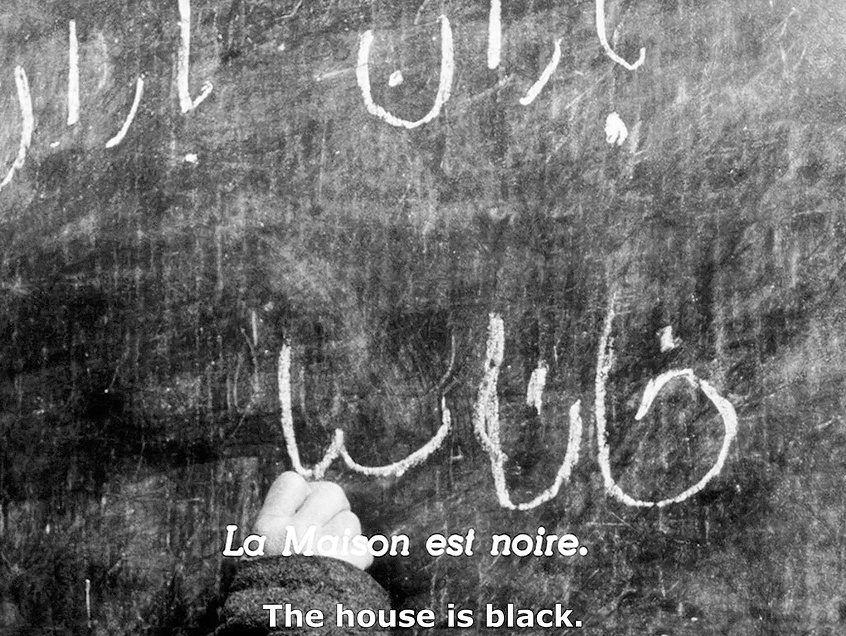 باران باران
La Maison est noire.
The house is black.